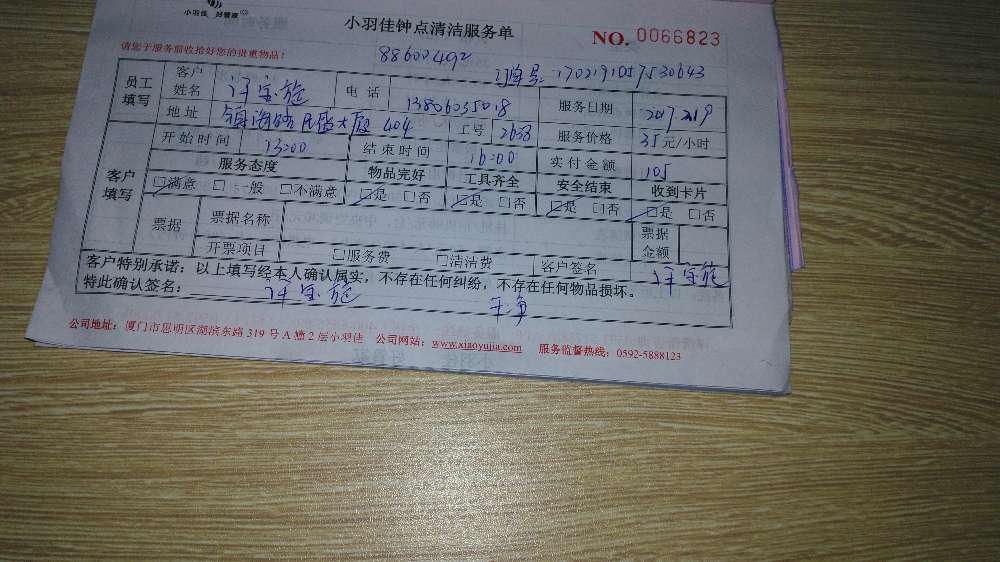 小羽佳 好管家
小羽佳钟点清洁服务单
NO. 0066823
请您于服务前收拾好您的贵重物品!
88600492
订单号 1702191057530643
员工填写 客户姓名 许宝施 电话 13806035018 服务日期 2017.2.19
地址 镇海路民盛大厦 404 工号 2638 服务价格 35元/小时
客户填写 开始时间 13:00 结束时间 16:00 实付金额 105
服务态度 物品完好 工具齐全 安全结束 收到卡片
☑满意 □一般 □不满意 ☑是 □否 ☑是 □否 ☑是 □否 ☑是 □否
票据 票据名称 票据金额
开票项目 □服务费 □清洁费 客户签名 许宝施
客户特别承诺:以上填写经本人确认属实,不存在任何纠纷,不存在任何物品损坏。
特此确认签名: 许宝施 干净
公司地址:厦门市思明区湖滨东路 319 号 A 幢 2 层小羽佳 公司网站:www.xiaoyujia.com 服务监督热线:0592-5888123